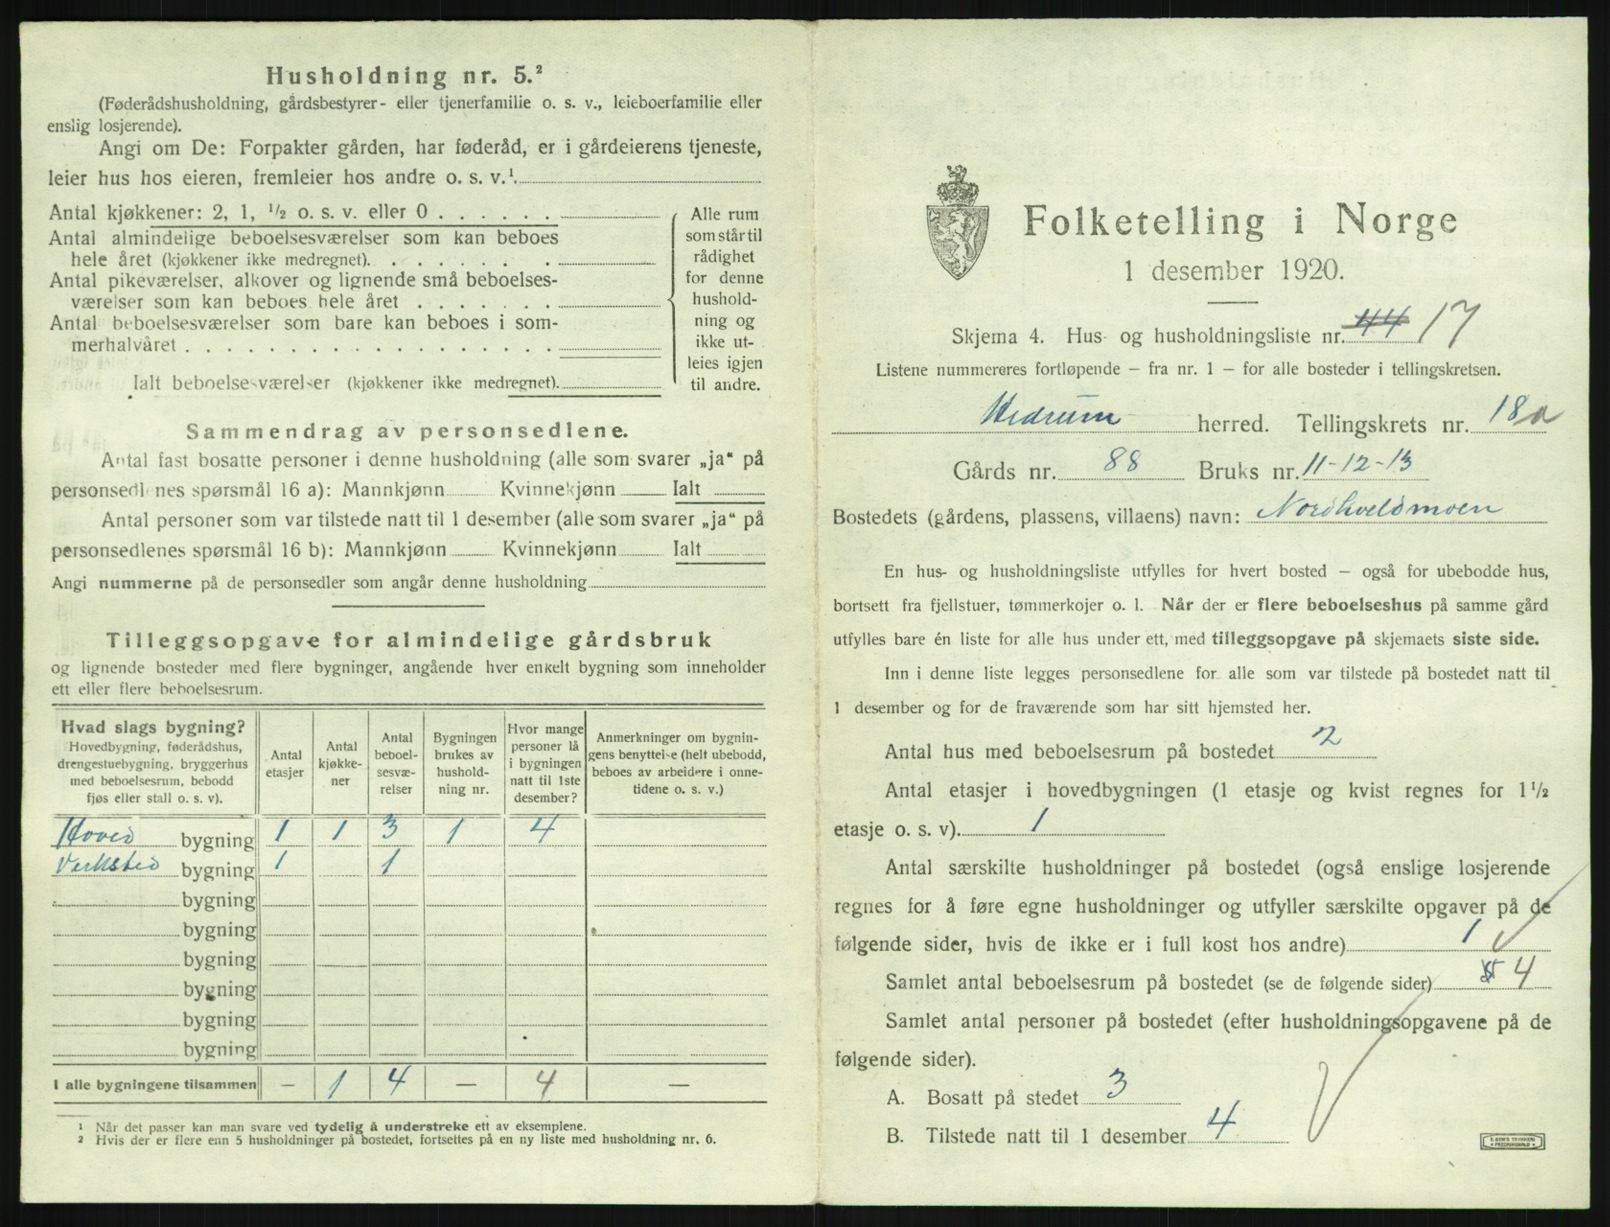 Husholdning nr. 5.²
(Føderådshusholdning, gårdsbestyrer- eller tjenerfamilie o. s. v., leieboerfamilie eller
enslig losjerende).
Angi om De: Forpakter gården, har føderåd, er i gårdeierens tjeneste,
leier hus hos eieren, fremleier hos andre o. s. v.¹
Antal kjøkkener: 2, 1, ½ o. s. v. eller 0
Antal almindelige beboelsesværelser som kan beboes
hele året (kjøkkener ikke medregnet).
Antal pikeværelser, alkover og lignende små beboelses-
værelser som kan beboes hele året
Antal beboelsesværelser som bare kan beboes i som-
merhalvåret
Ialt beboelsesværelser (kjøkkener ikke medregnet).
Alle rum
som står til
rådighet
for denne
hushold-
ning og
ikke ut-
leies igjen
til andre.
Sammendrag av personsedlene.
Antal fast bosatte personer i denne husholdning (alle som svarer „ja“ på
personsedlenes spørsmål 16 a): Mannkjønn Kvinnekjønn Ialt
Antal personer som var tilstede natt til 1 desember (alle som svarer „ja“ på
personsedlenes spørsmål 16 b): Mannkjønn Kvinnekjønn Ialt
Angi nummerne på de personsedler som angår denne husholdning
Tilleggsopgave for almindelige gårdsbruk
og lignende bosteder med flere bygninger, angående hver enkelt bygning som inneholder
ett eller flere beboelsesrum.
Hvad slags bygning?
Hovedbygning, føderådshus,
drengestuebygning, bryggerhus
med beboelsesrum, bebodd
fjøs eller stall o. s. v).
Antal
etasjer
Antal
kjøkke-
ner
Antal
beboel-
sesvæ-
relser
Bygningen
brukes av
hushold-
ning nr.
Hvor mange
personer lå
i bygningen
natt til 1ste
desember?
Anmerkninger om bygnin-
gens benyttelse (helt ubebodd,
beboes av arbeidere i onne-
tidene o. s. v.)
Hoved bygning 1 1 3 1 4
Verksted bygning 1 1
bygning
bygning
bygning
bygning
bygning
bygning
I alle bygningene tilsammen — 1 4 — 4 —
¹ Når det passer kan man svare ved tydelig å understreke ett av eksemplene.
² Hvis der er flere enn 5 husholdninger på bostedet, fortsettes på en ny liste med husholdning nr. 6.
Folketelling i Norge
1 desember 1920.
Skjema 4. Hus- og husholdningsliste nr. 44 17
Listene nummereres fortløpende – fra nr. 1 – for alle bosteder i tellingskretsen.
Hedrum herred. Tellingskrets nr. 18a
Gårds nr. 88 Bruks nr. 11-12-13
Bostedets (gårdens, plassens, villaens) navn: Nordhvedsmoen
En hus- og husholdningsliste utfylles for hvert bosted – også for ubebodde hus,
bortsett fra fjellstuer, tømmerkojer o. l. Når der er flere beboelseshus på samme gård
utfylles bare én liste for alle hus under ett, med tilleggsopgave på skjemaets siste side.
Inn i denne liste legges personsedlene for alle som var tilstede på bostedet natt til
1 desember og for de fraværende som har sitt hjemsted her.
Antal hus med beboelsesrum på bostedet 2
Antal etasjer i hovedbygningen (1 etasje og kvist regnes for 1 ½
etasje o. s. v). 1
Antal særskilte husholdninger på bostedet (også enslige losjerende
regnes for å føre egne husholdninger og utfyller særskilte opgaver på de
følgende sider, hvis de ikke er i full kost hos andre) 1
Samlet antal beboelsesrum på bostedet (se de følgende sider) 4
Samlet antal personer på bostedet (efter husholdningsopgavene på de
følgende sider).
A. Bosatt på stedet 3
B. Tilstede natt til 1 desember 4